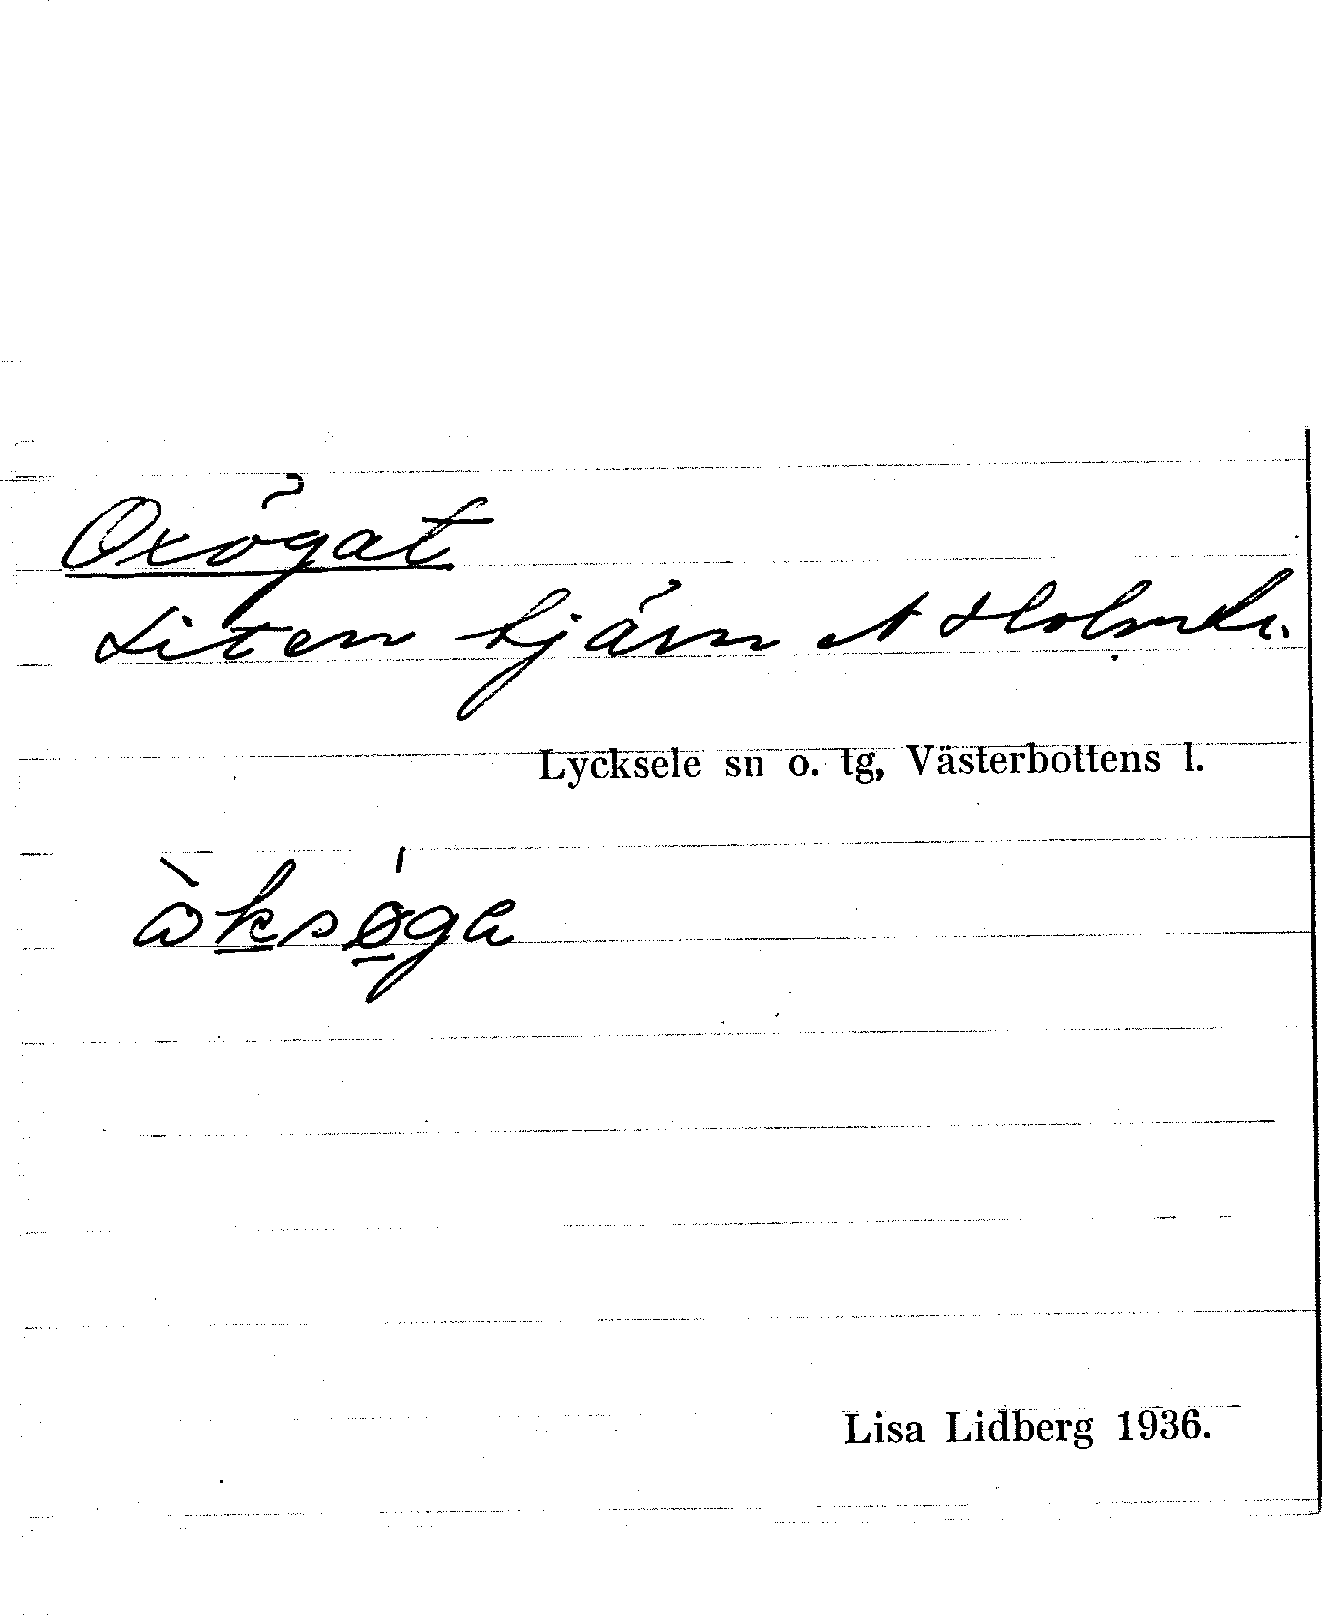 Oxögat
Liten tjärn st Holmtr.
Lycksele sn o. tg, Västerbottens l.
òksǿga
Lisa Lidberg 1936.